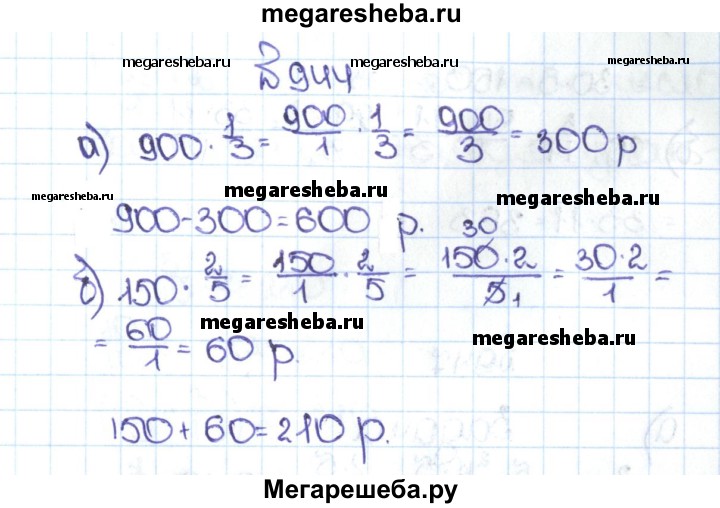 megaresheba.ru
megaresheba.ru megaresheba.ru
944
а) 900 · 1/3 = 900/1 · 1/3 = 900/3 = 300 р
megaresheba.ru megaresheba.ru megaresheba.ru
900 - 300 = 600 р.
30
б) 150 · 2/5 = 150/1 · 2/5 = 150·2/5 1 = 30·2/1 =
= 60/1 = 60 р.
megaresheba.ru megaresheba.ru
150 + 60 = 210 р.
Мегарешеба.ру